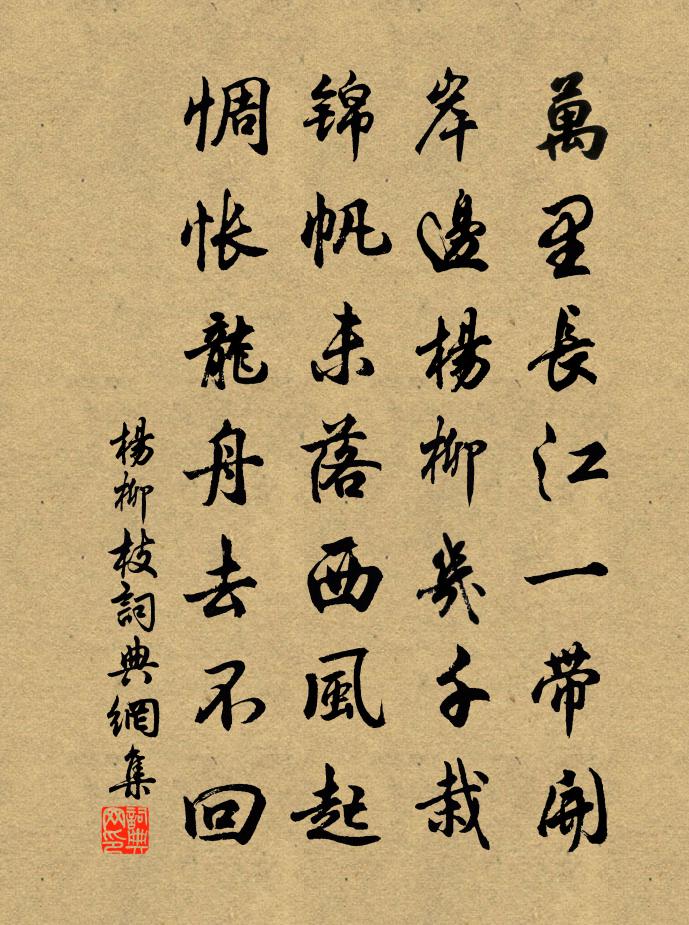 萬里長江一帶開
岸邊楊柳幾千栽
錦帆未落西風起
惆悵龍舟去不回
楊柳枝詞典網集
詞典網印